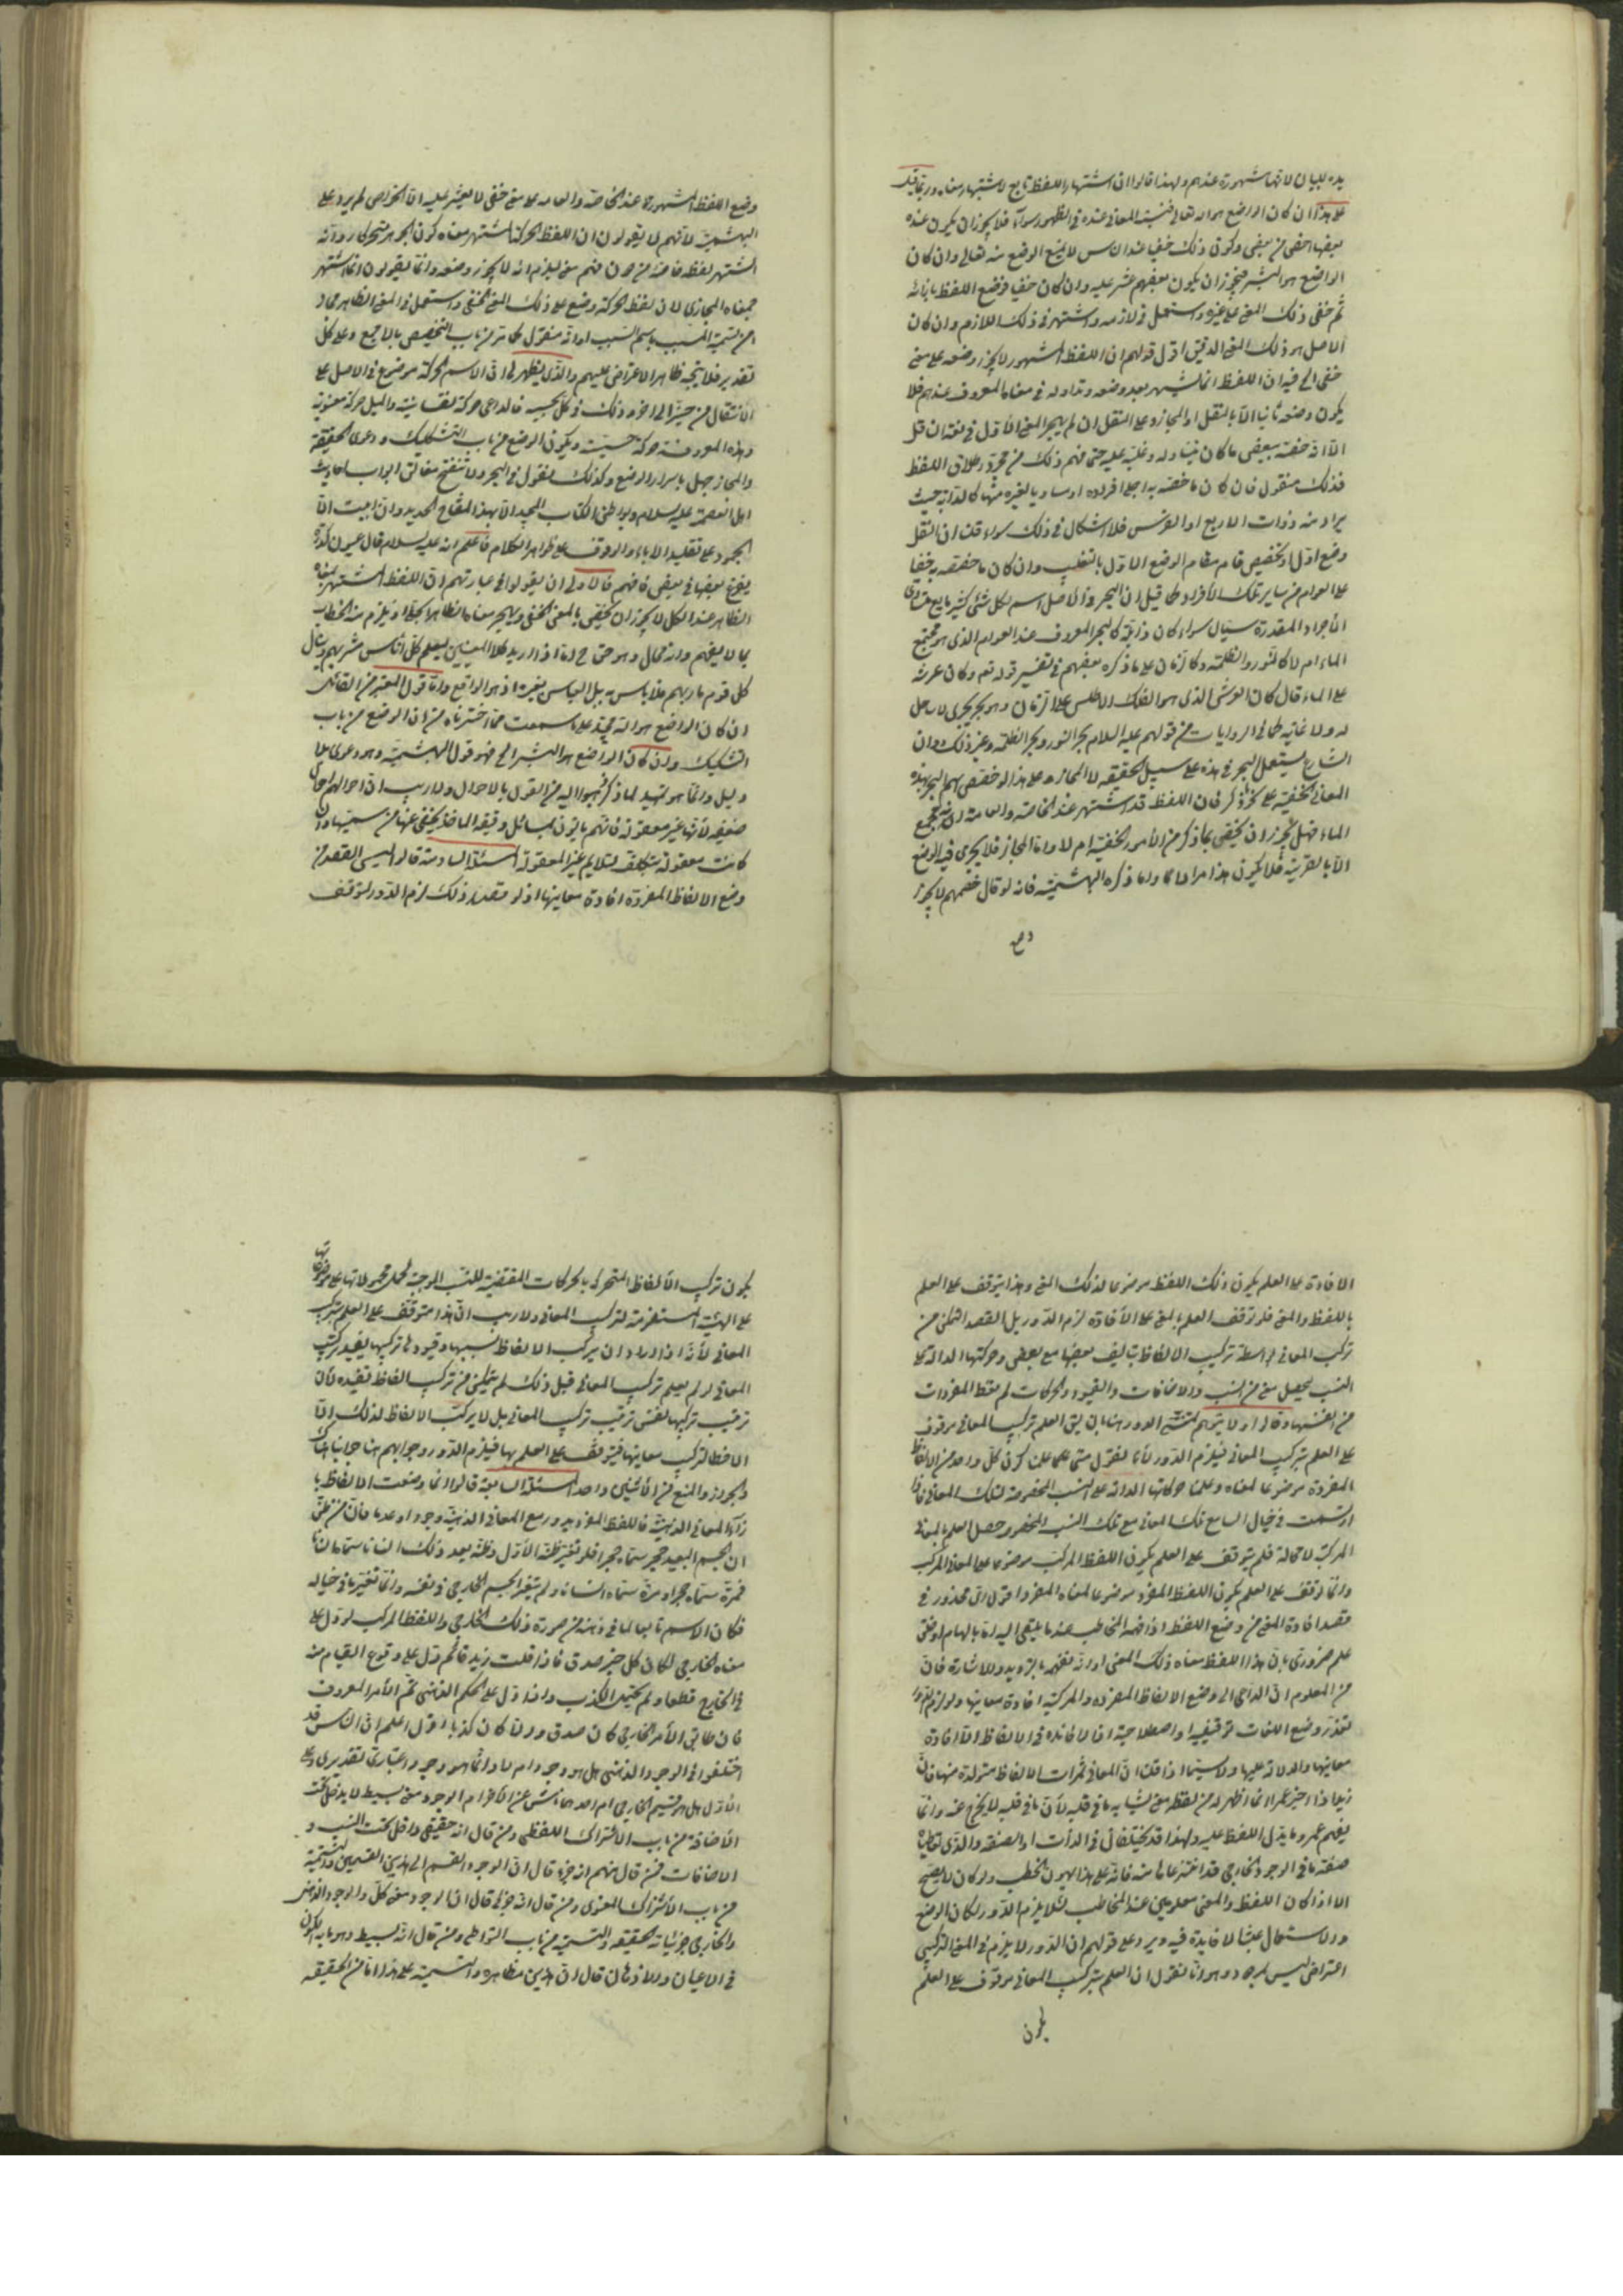 يده للبيان لانها مشهورة عندهم ولهذا قالوا ان اشتهار اللفظ تابع لاشتهار معناه وربما قيل
على هذا ان كان الواضع هو الله تعالى فنسبة المعاني عنده في الظهور سواء فلا يجوز ان يكون عنده
بعضها اخفى من بعض وكون ذلك خفيا عند الناس لا يمنع الوضع منه تعالى وان كان
الواضع هو البشر فيجوز ان يكون بعضهم عثر عليه وان كان خفيا فوضع اللفظ بازائه
ثم خفي ذلك المعنى على غيره واستعمل في لازمه واشتهر في ذلك اللازم وان كان
الاصل هو ذلك المعنى الدقيق اقول قولهم ان اللفظ المشهور لا يجوز وضعه على معنى
خفي الخ فيه ان اللفظ انما يشتهر بعد وضعه وتداوله في معناه المعروف عندهم فلا
يكون وضعه ثانيا الا بالنقل او المجاز وعلى النقل ان لم يهجر المعنى الاول في لغة ان قل
الا انه خصه ببعض ما كان يتناوله وغلبه عليه حتى فهم ذلك من مجرد اطلاق اللفظ
فذلك منقول فان كان ما خصه به اجلى افراده او مساويا لغيره منها كالدابة حيث
يراد منه ذوات الاربع او الفرس فلا اشكال في ذلك سواء قلنا ان النقل
وضع اول او تخصيص قام مقام الوضع الاول بالتغليب وان كان ما خصصه به خفيا
على العوام من ساير تلك الافراد كما قيل ان البحر في الاصل اسم لكل شئ كثير مايع متساوى
الاجزاء المقدرة سيال سواء كان ذائبا كالبحر المعروف عند العوام الذي هو مجتمع
الماء ام لا كالنور والظلمة وكالزمان على ما ذكره بعضهم في تفسير قوله تعم وكان عرشه
على الماء قال كان العرش الذي هو الفلك الاطلس على الزمان وهو بحر يجري لا ساحل
له ولا غاية كما في الروايات من قولهم عليه السلام بحر النور وبحر الظلمة وغير ذلك وان
الشارع يستعمل البحر في هذه على سبيل الحقيقة لا المجاز وعلى هذا لو خصص اسم البحر بهذه
المعاني الخفية على نحو ذكر فان اللفظ قد اشتهر عند الخاصة والعامة انه مجمع
الماء فهل يجوز ان يختص بما ذكر من الامور الخفية ام لا واما المجاز فلا يجري فيه الوضع
الا بالقرينة فلا يكون هذا مرادا لما ذكره البهشمية فانه لو قال خصمهم لا يجوز
وضع
وضع اللفظ المشهور عند الخاصة والعامة على معنى خفي لا يعثر عليه الا الخواص لم يرد على
البهشمية لانهم لا يقولون ان اللفظ الحركة اشتهر معناه كون الجوهر متحركا وانه
اشتهر لفظه فاخذ من دون فهم معنى يلزم انه لا يجوز وضعه وانما يقولون انما اشتهر
بمعناه المجازي لان لفظ الحركة وضع على ذلك المعنى الخفي واستعمل في المعنى الظاهر مجازا
من تسمية المسبب باسم السبب او انه منقول كما مر من باب التخصيص بالاجمع وعلى كل
تقدير فلا يتجه ظاهر الاعتراض عليهم والذي يظهر لي ان الاسم الحركة موضوع في الاصل على
الانتقال من حيز الى اخر وذلك في كل بحسبه فالدواعي حركة نفسانية والميل حركة معنوية
وهذه المعروفة حركة حسية ويكون الوضع من باب التشكيك ودعوى الحقيقة
والمجاز جهل باسرار الوضع وكذلك نقول في البحر ولا تنفتح مغالق ابواب احاديث
اهل العصمة عليهم السلام وبواطن الكتاب المجيد الا بهذا المفتاح الحديد وان ابيت الا
الجمود على تقليد الاباء والوقوف على ظواهر الكلام فاعلم انه عليه السلام قال عيون كدرة
يفرغ بعضها في بعض فافهم فالاولى ان يقولوا في عبارتهم ان اللفظ المشتهر بمعناه
الظاهر عند الكل لا يجوز ان يختص بالمعنى الخفي ويهجر معناه الظاهر الجلي او يلزم منه الخطاب
بما لا يفهم وانه محال وهو حق ح اما اذا اريد كلا المعنيين ليعلم كل اناس مشربهم وينال
كل قوم ماربهم فلا باس به بل الباس بغيره اذ هو الواقع واما قول المعتبر من القائلين
ان كان الواضع هو الله فمبتن على ما سمعت مما اخترناه من ان الوضع من باب
التشكيك وان كان الواضع هو البشر الخ فهو قول البهشمية وهو دعوى بلا
دليل وانما هو تمهيد لما ذكر ذهبوا اليه من القول بالاحوال ولا ريب ان احوالهم احوال
ضعيفة لانها غير معقولة فانهم ياتون بمسائل دقيقة الماخذ يختفى عنها من سمعها وان
كانت معقولة بتكلف لتلايم غير المعقولة المسئلة السادسة قالوا ليس القصد من
وضع الالفاظ المفردة افادة معانيها اذ لو قصد ذلك لزم الدور لتوقف
الافادة على العلم بكون ذلك اللفظ موضوعا لذلك المعنى وهذا يتوقف على العلم
باللفظ والمعنى فلو توقف العلم بالمعنى على الافادة لزم الدور بل القصد التمكن من
تركيب المعاني بواسطة تركيب الالفاظ بتاليف بعضها مع بعض وحركتها الدالة على
النسب ليحصل معنى من النسب والاضافات والقيود والحركات لم تعط المفردات
من انفسها وقالوا ولا يتوهم لمتشبه الدور هنا بان يق العلم بتركيب المعاني موقوف
على العلم بتركيب المعاني فيلزم الدور لانا نقول متى علمنا كون كل واحد من الالفاظ
المفردة موضوعا لمعناه وعلمنا حركاتها الدالة على النسب المخصوصة لتلك المعاني فاذا
ارتسمت في خيال السامع تلك المعاني مع تلك النسب المخصوصة حصل العلم بالمعاني
المركبة لا محالة فلم يتوقف على العلم بكون اللفظ المركب موضوعا على المعاني المركب
وانما توقف على العلم بكون اللفظ المفرد موضوعا لمعناه المفرد اقول اي محذور في
قصد افادة المعنى من وضع اللفظ اذا فهمه المخاطب عند ما يلقى اليه اما بالهام او خلق
علم ضروري بان هذا اللفظ معناه ذلك المعنى او انه تفهمه بالترديد والاشارة فان
من المعلوم ان الداعي الى وضع الالفاظ المفردة والمركبة افادة معانيها ولو لزم الدور
لتعذر وضع اللغات توقيفية او اصطلاحية اذ لا فائدة في الالفاظ الا افادة
معانيها والدلالة عليها ولا سيما اذا قلنا ان المعاني ثمرات الالفاظ متولدة منها فان
زيدا اذا اخبر عمرا انما اظهر له من لفظه معنى يشابه ما في قلبه لان ما في قلبه لا يخرج عنه وانما
يفهم عمرو ما يدل اللفظ عليه ولهذا قد يختلفان في الذات او الصفة والذي تعطيه
صفة ما في الوجود الخارجي قد اخذ علمه منه فانه على هذا يهون الخطب ولو كان لا يصح
الا اذا كان اللفظ والمعنى معلومين عند المخاطب لئلا يلزم الدور لكان الوضع
والاستعمال عبثا لا فايدة فيه ويرد على قولهم ان الدور لا يلزم في المعنى التركيبي
اعتراض ليس بمردود وهو انا نقول ان العلم بتركيب المعاني موقوف على العلم
بكون
بكون تركيب الالفاظ المتحركة بالحركات المقتضية للنسب الموجبة لحمل محمولاتها على موضوعاتها
على الهيئة المستغرقة لتركيب المعاني ولا ريب ان هذا متوقف على العلم بتركيب
المعاني لانه اذا اراد ان يركب الالفاظ بنسبها وقيودها تركيبا يفيد تركيب
المعاني لو لم يعلم تركيب المعاني قبل ذلك لم يتمكن من تركيب الفاظ تفيده لان
ترتيب تركيبها نفس ترتيب تركيب المعاني بل لا يركب الالفاظ لذلك الا
لاحظا لتركيب معانيها فيتوقف على العلم بها فيلزم الدور وجوابهم هنا جوابنا هناك
والجواز والمنع من الاثنين واحد المسئلة السابعة قالوا انما وضعت الالفاظ بازاء
المعاني الذهنية فاللفظ المفرد يدور مع المعاني الذهنية وجودا وعدما فان من ظن
ان الجسم البعيد حجر سماه حجرا فلو تغير ظنه الاول وظنه بعد ذلك انسانا سماه انسانا
فمرة سماه حجرا ومرة سماه انسانا ولم يتغير الجسم الخارجي في نفسه وانما تغير ما في خياله
فكان الاسم تابعا لما في ذهنه من صورة ذلك الخارجي واللفظ المركب لو دل على
معناه الخارجي لكان كل خبر صدق فاذا قلت زيد قائم دل على وقوع القيام منه
في الخارج قطعا ولم يحتمل الكذب واذا دل على الحكم الذهني ثم الامر المعروف
فان طابق الامر الخارجي كان صدق والا كان كذبا اقول اعلم ان الناس قد
اختلفوا في الوجود الذهني هل هو وجود ام لا وانما هو وجود اعتباري تقديري وعلى
الاول هل هو قسيم الخارجي ام احدهما ناش عن الاخر ام الوجود معنى بسيط لا يدخل تحت
الاضافة من باب الاشتراك اللفظي ومن قال انه حقيقي داخل تحت النسب و
الاضافات فمن قال منهم انه جزء قال ان الوجود القسم الى هذين القسمين والتسمية
من باب الاشتراك المعنوي ومن قال انه جزئي قال ان الوجود معنى كلي والوجود الذهني
والخارجي جزئياته الحقيقة والتسمية من باب التواطي ومن قال انه بسيط وهو ما به الكون
في الاعيان والاذهان قال ان هذين مظاهره والتسمية على هذا اما من الحقيقة